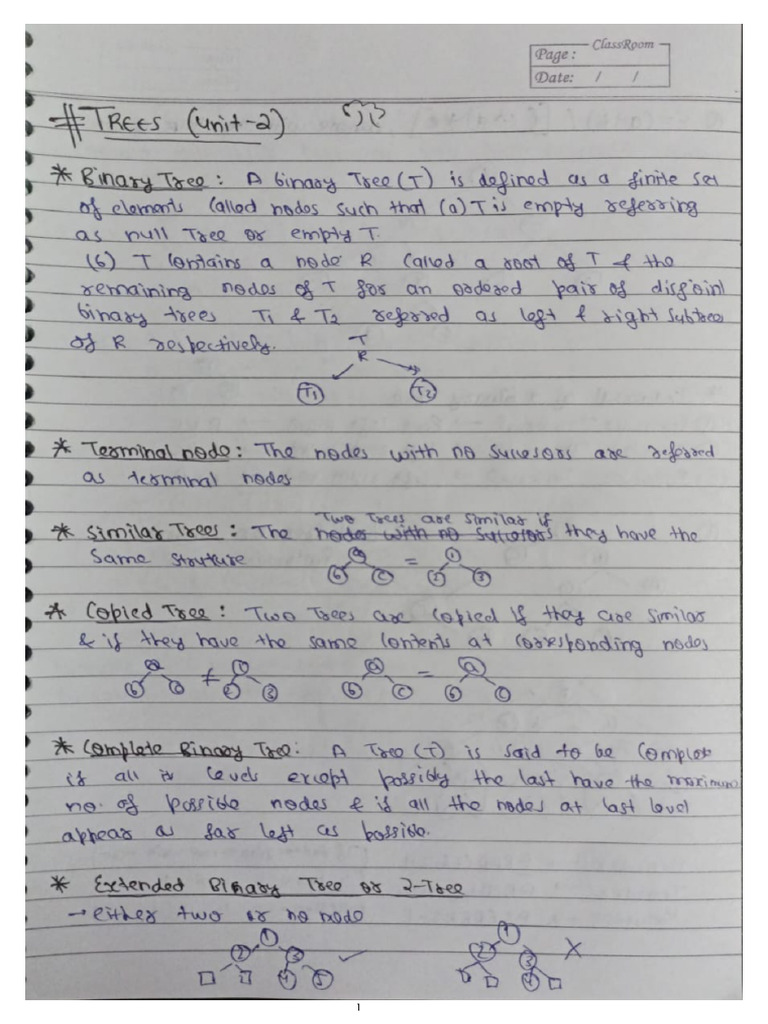 ClassRoom
Page :
Date: / /
# TREES (unit-2)
* Binary Tree : A binary Tree (T) is defined as a finite set
of elements called nodes such that (a) T is empty referring
as null Tree or empty T.
(b) T contains a node R called a root of T & the
remaining nodes of T for an ordered pair of disjoint
binary trees T1 & T2 referred as left & right subtrees
of R respectively.
T
R
T1 T2
* Terminal node : The nodes with no succesors are referred
as terminal nodes
Two Trees are similar if
* Similar Trees : The nodes with no succesors they have the
Same struture
a = 1
b c 2 3
* Copied Tree : Two Trees are copied if they are similar
& if they have the same contents at corresponding nodes
a ≠ 1 a = a
b c 2 3 b c b c
* Complete Binary Tree : A Tree (T) is said to be complete
if all its levels except possibly the last have the maximum
no. of possible nodes & if all the nodes at last level
appear as far left as possible.
* Extended Binary Tree or 2-Tree
→ either two or no node
1 1
2 3 ✓ 2 3 X
4 5 4
1